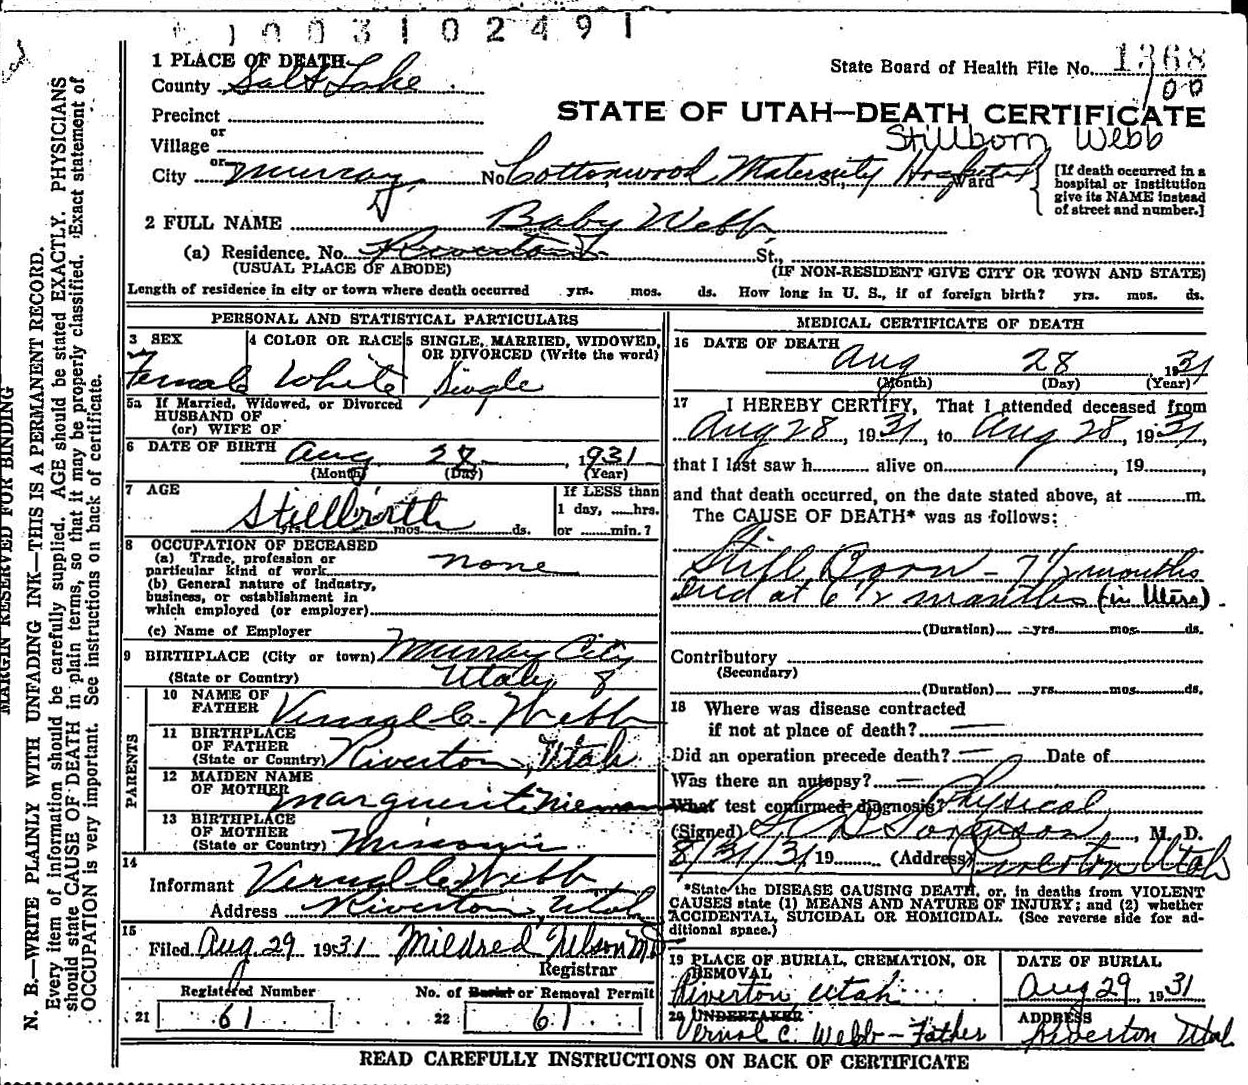 1003102491
1 PLACE OF DEATH
State Board of Health File No. 1368
County Salt Lake
100
Precinct
STATE OF UTAH—DEATH CERTIFICATE
or
Stillborn Webb
Village
or
City Murray, No. Cottonwood Maternity St., Hospital Ward
[If death occurred in a
hospital or institution
give its NAME instead
of street and number.]
2 FULL NAME Baby Webb
(a) Residence. No. Riverton St.,
(USUAL PLACE OF ABODE) (IF NON-RESIDENT GIVE CITY OR TOWN AND STATE)
Length of residence in city or town where death occurred yrs. mos. ds. How long in U. S., if of foreign birth? yrs. mos. ds.
PERSONAL AND STATISTICAL PARTICULARS
3 SEX 4 COLOR OR RACE 5 SINGLE, MARRIED, WIDOWED,
OR DIVORCED (Write the word)
Female White Single
5a If Married, Widowed, or Divorced
HUSBAND OF
(or) WIFE OF
6 DATE OF BIRTH Aug 28, 1931
(Month) (Day) (Year)
7 AGE
If LESS than
Stillbirth
1 day, ......hrs.
yrs. mos. ds. or ......min.?
8 OCCUPATION OF DECEASED
(a) Trade, profession or
particular kind of work none
(b) General nature of industry,
business, or establishment in
which employed (or employer)
(c) Name of Employer
9 BIRTHPLACE (City or town) Murray City
(State or Country) Utah 8
PARENTS
10 NAME OF
FATHER Vernal C. Webb
11 BIRTHPLACE
OF FATHER
(State or Country) Riverton, Utah
12 MAIDEN NAME
OF MOTHER Marguerite Nieman
13 BIRTHPLACE
OF MOTHER
(State or Country) Missouri
14
Informant Vernal C Webb
Address Riverton, Utah
15
Filed Aug 29 1931 Mildred Nelson M.D.
Registrar
Registered Number No. of Burial or Removal Permit
21 61 22 61
MEDICAL CERTIFICATE OF DEATH
16 DATE OF DEATH
Aug 28, 1931
(Month) (Day) (Year)
17 I HEREBY CERTIFY, That I attended deceased from
Aug 28, 1931, to Aug 28, 1931,
that I last saw h............ alive on........................, 19........,
and that death occurred, on the date stated above, at ............m.
The CAUSE OF DEATH* was as follows:
Still Born - 7 1/2 months
Died at 6 1/2 months (in Utero).
(Duration).... yrs. mos. ds.
Contributory
(Secondary)
(Duration).... yrs. mos. ds.
18 Where was disease contracted
if not at place of death? —
Did an operation precede death? — Date of
Was there an autopsy? —
What test confirmed diagnosis? Physical
(Signed) Sorenson, M. D.
8/31/31 19...... (Address) Riverton Utah
*State the DISEASE CAUSING DEATH, or, in deaths from VIOLENT
CAUSES state (1) MEANS AND NATURE OF INJURY; and (2) whether
ACCIDENTAL, SUICIDAL OR HOMICIDAL. (See reverse side for ad-
ditional space.)
19 PLACE OF BURIAL, CREMATION, OR
REMOVAL
Riverton Utah
DATE OF BURIAL
Aug 29, 1931
20 UNDERTAKER
Vernal C. Webb – Father
ADDRESS
Riverton Utah
READ CAREFULLY INSTRUCTIONS ON BACK OF CERTIFICATE
MARGIN RESERVED FOR BINDING
N. B.—WRITE PLAINLY WITH UNFADING INK—THIS IS A PERMANENT RECORD.
Every item of information should be carefully supplied. AGE should be stated EXACTLY. PHYSICIANS
should state CAUSE OF DEATH in plain terms, so that it may be properly classified. Exact statement of
OCCUPATION is very important. See instructions on back of certificate.